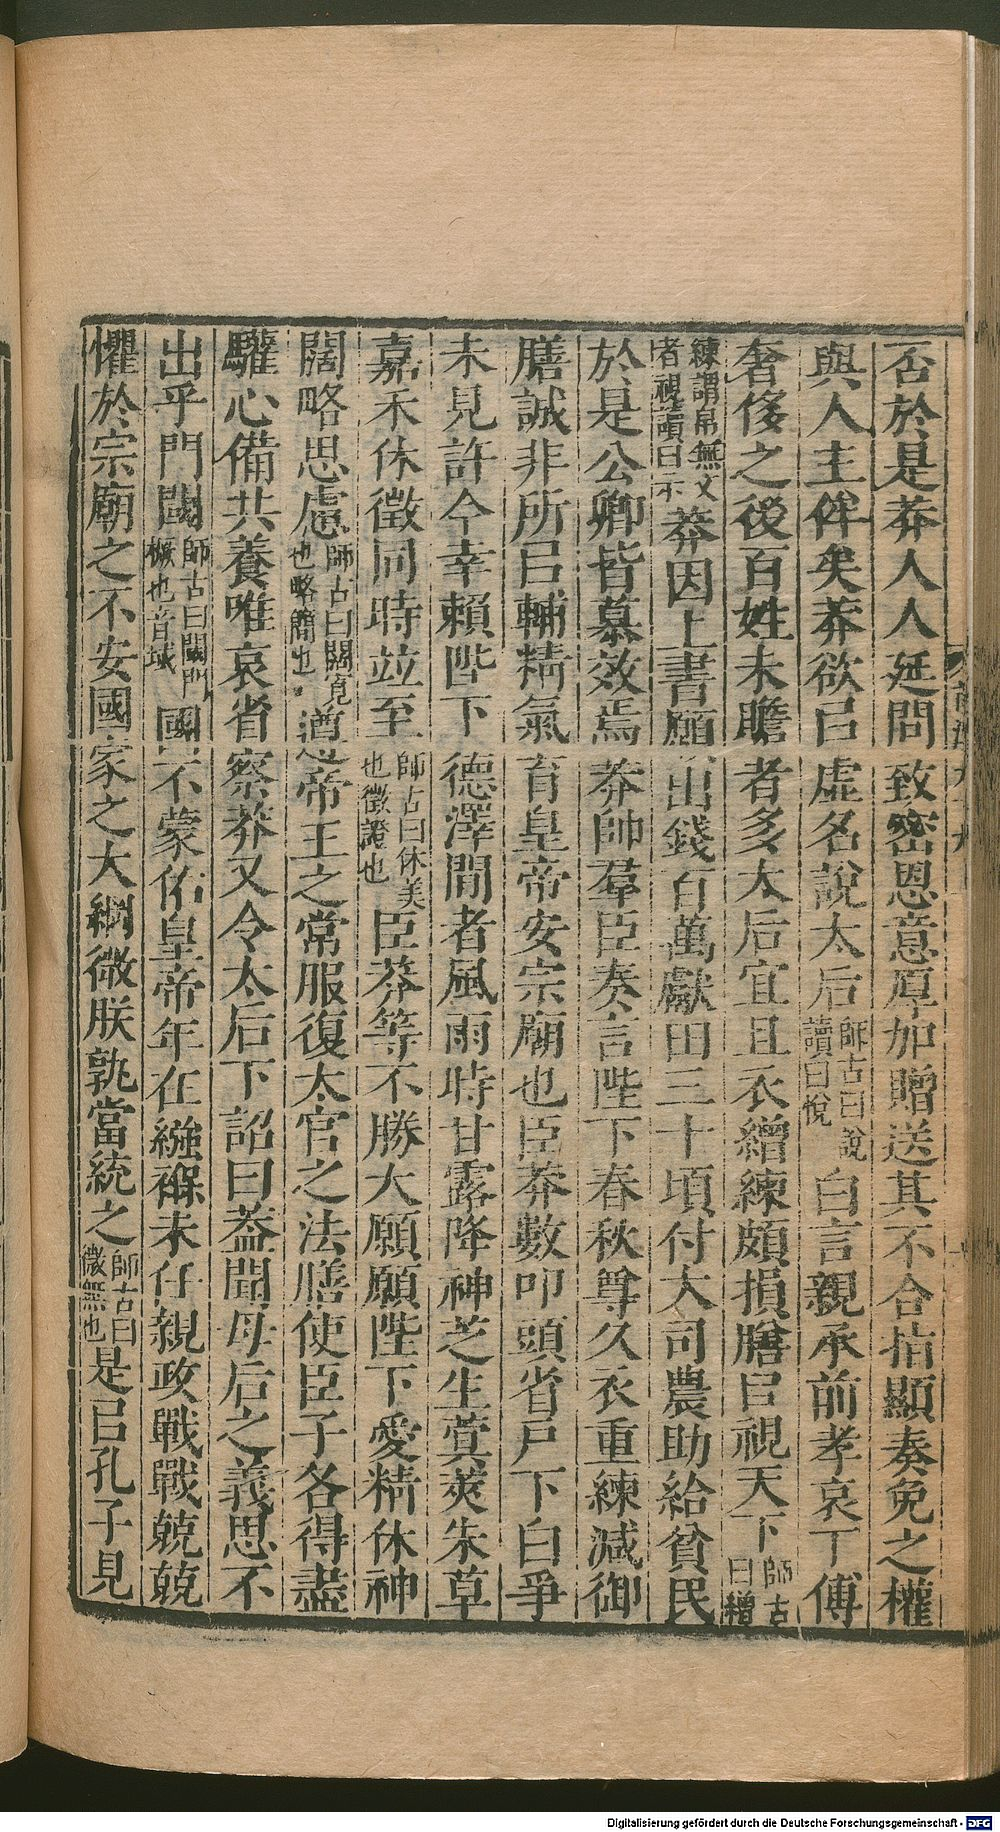 否於是莽人人延問致密恩意厚加贈送其不合指顯奏免之權
與人主侔矣莽欲㠯虛名說太后師古曰說讀曰悅白言親承前孝哀丁傅
奢侈之後百姓未贍者多太后宜且衣繒練頗損膳㠯視天下師古曰繒
練謂帛無文者視讀曰示莽因上書願出錢百萬獻田三十頃付大司農助給貧民
於是公卿皆慕效焉莽帥羣臣奏言陛下春秋尊久衣重練減御
膳誠非所㠯輔精氣育皇帝安宗廟也臣莽數叩頭省戶下白爭
未見許今幸賴陛下德澤間者風雨時甘露降神芝生蓂莢朱草
嘉禾休徵同時並至師古曰休美也徵證也臣莽等不勝大願願陛下愛精休神
闊略思慮師古曰闊寬也略簡也遵帝王之常服復太官之法膳使臣子各得盡
驩心備共養唯哀省察莽又令太后下詔曰蓋聞母后之義思不
出乎門閾師古曰閾門橛也音域國不蒙佑皇帝年在繈褓未任親政戰戰兢兢
懼於宗廟之不安國家之大綱微朕孰當統之師古曰微無也是㠯孔子見
Digitalisierung gefördert durch die Deutsche Forschungsgemeinschaft - DFG